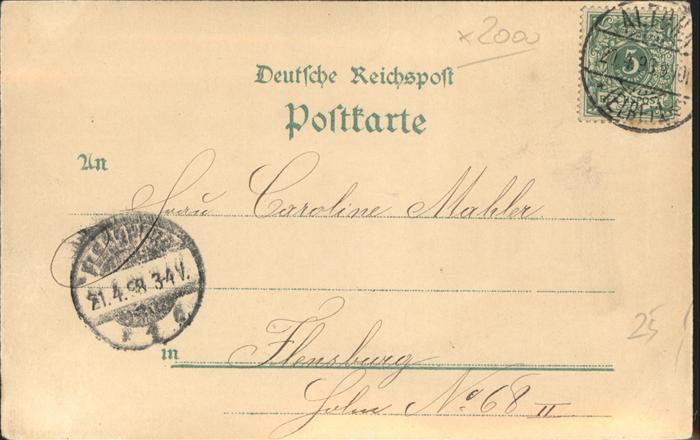 x2000
Deutsche Reichspost
Postkarte
An
Frau Caroline Mahler.
21.4.98. 3-4 N.
5
25
in Flensburg
Holm No. 68 II